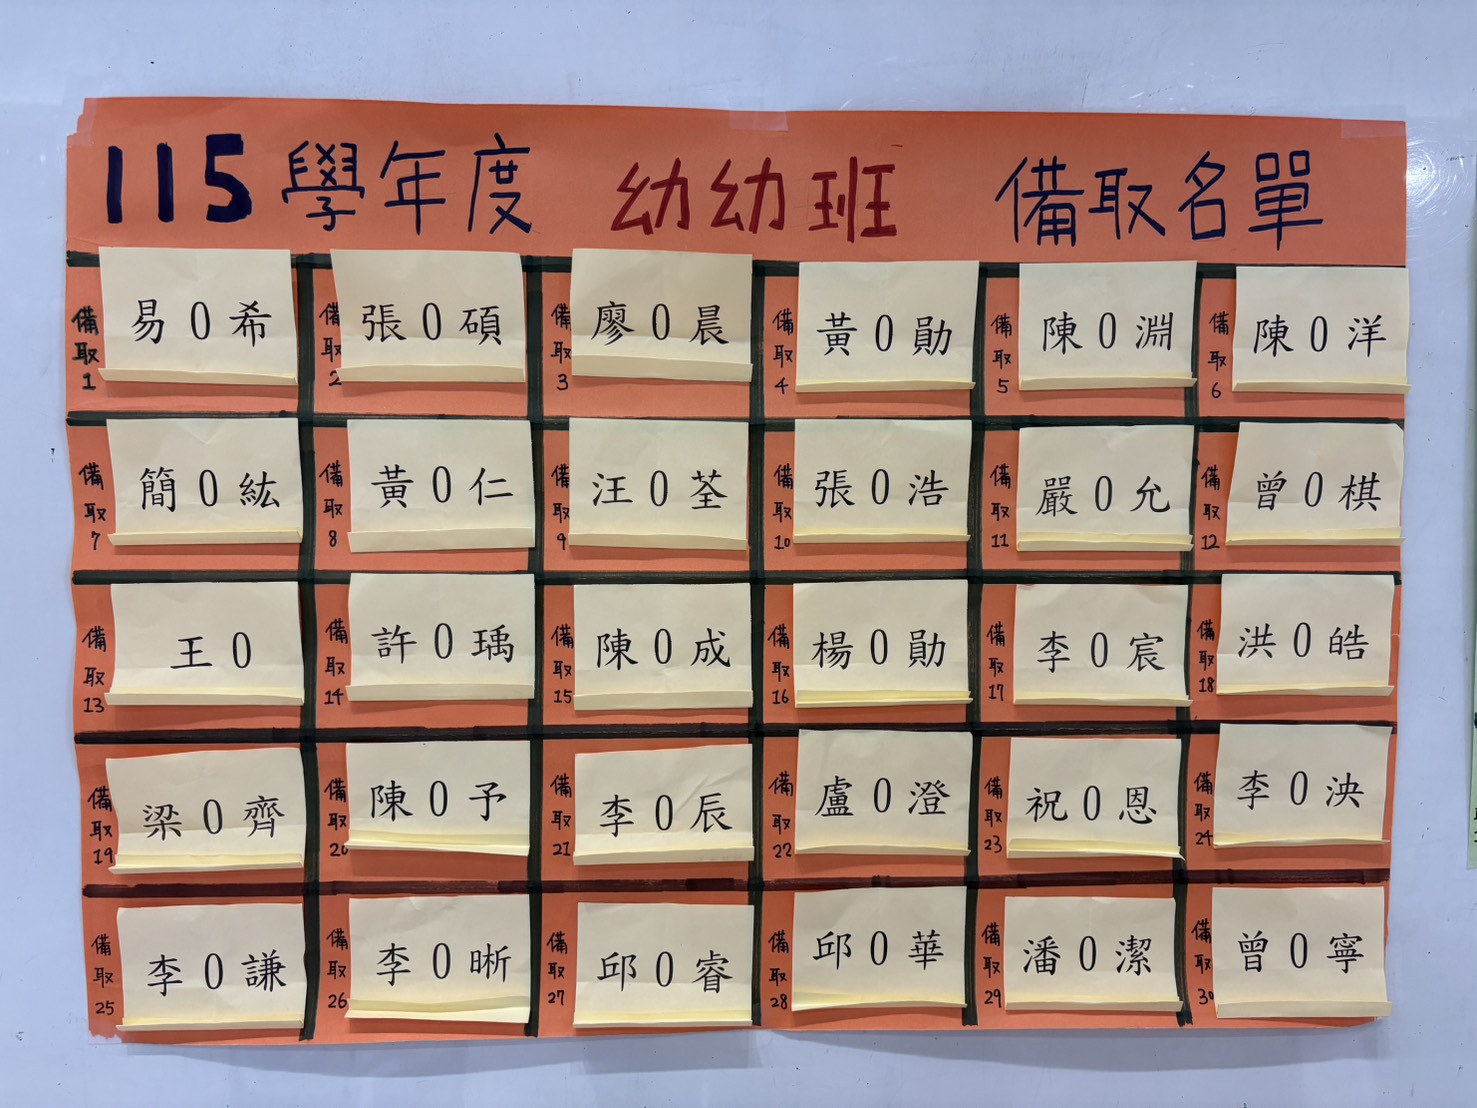 115學年度 幼幼班 備取名單
備取1 易0希
備取2 張0碩
備取3 廖0晨
備取4 黃0勛
備取5 陳0淵
備取6 陳0洋
備取7 簡0紘
備取8 黃0仁
備取9 汪0荃
備取10 張0浩
備取11 嚴0允
備取12 曾0棋
備取13 王0
備取14 許0瑀
備取15 陳0成
備取16 楊0勛
備取17 李0宸
備取18 洪0皓
備取19 梁0齊
備取20 陳0予
備取21 李0辰
備取22 盧0澄
備取23 祝0恩
備取24 李0泱
備取25 李0謙
備取26 李0晰
備取27 邱0睿
備取28 邱0華
備取29 潘0潔
備取30 曾0寧